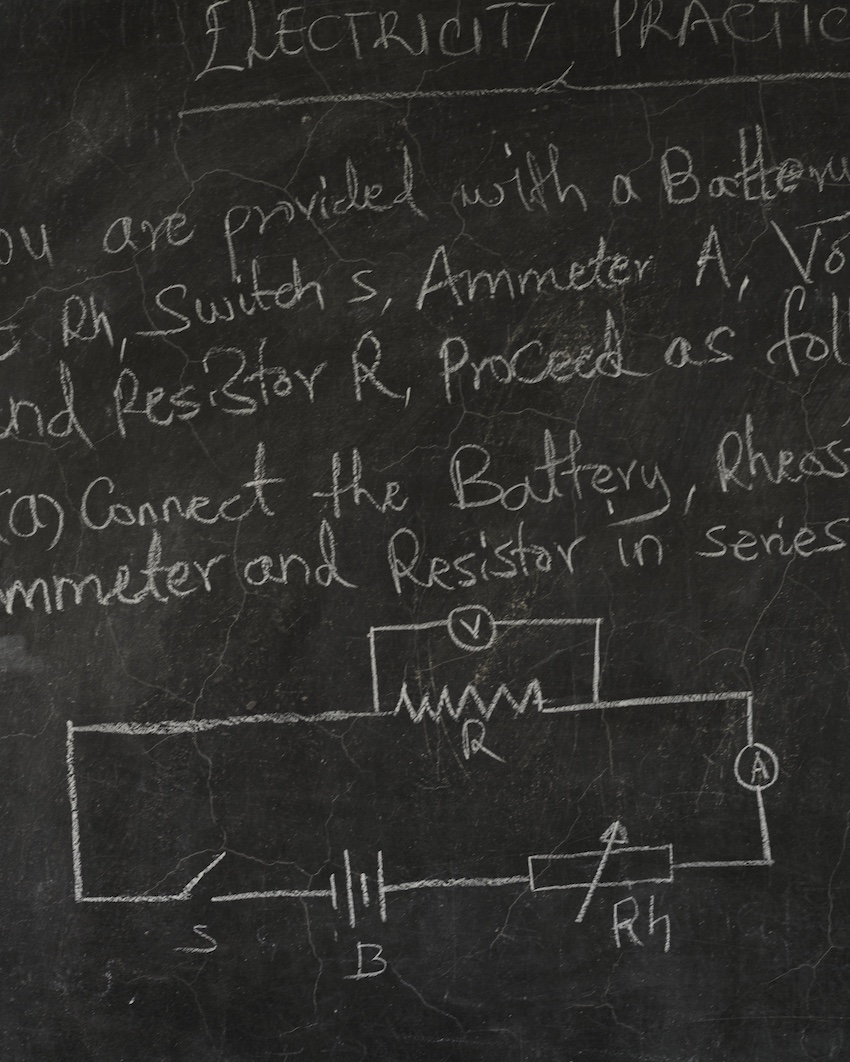 ELECTRICITY PRACTIC
ou are provided with a Battery
Rh, Switch S, Ammeter A, Vo
and Resistor R, Proceed as fol
(a) Connect the Battery, Rheos
mmeter and Resistor in series
V
R
A
S
B
Rh